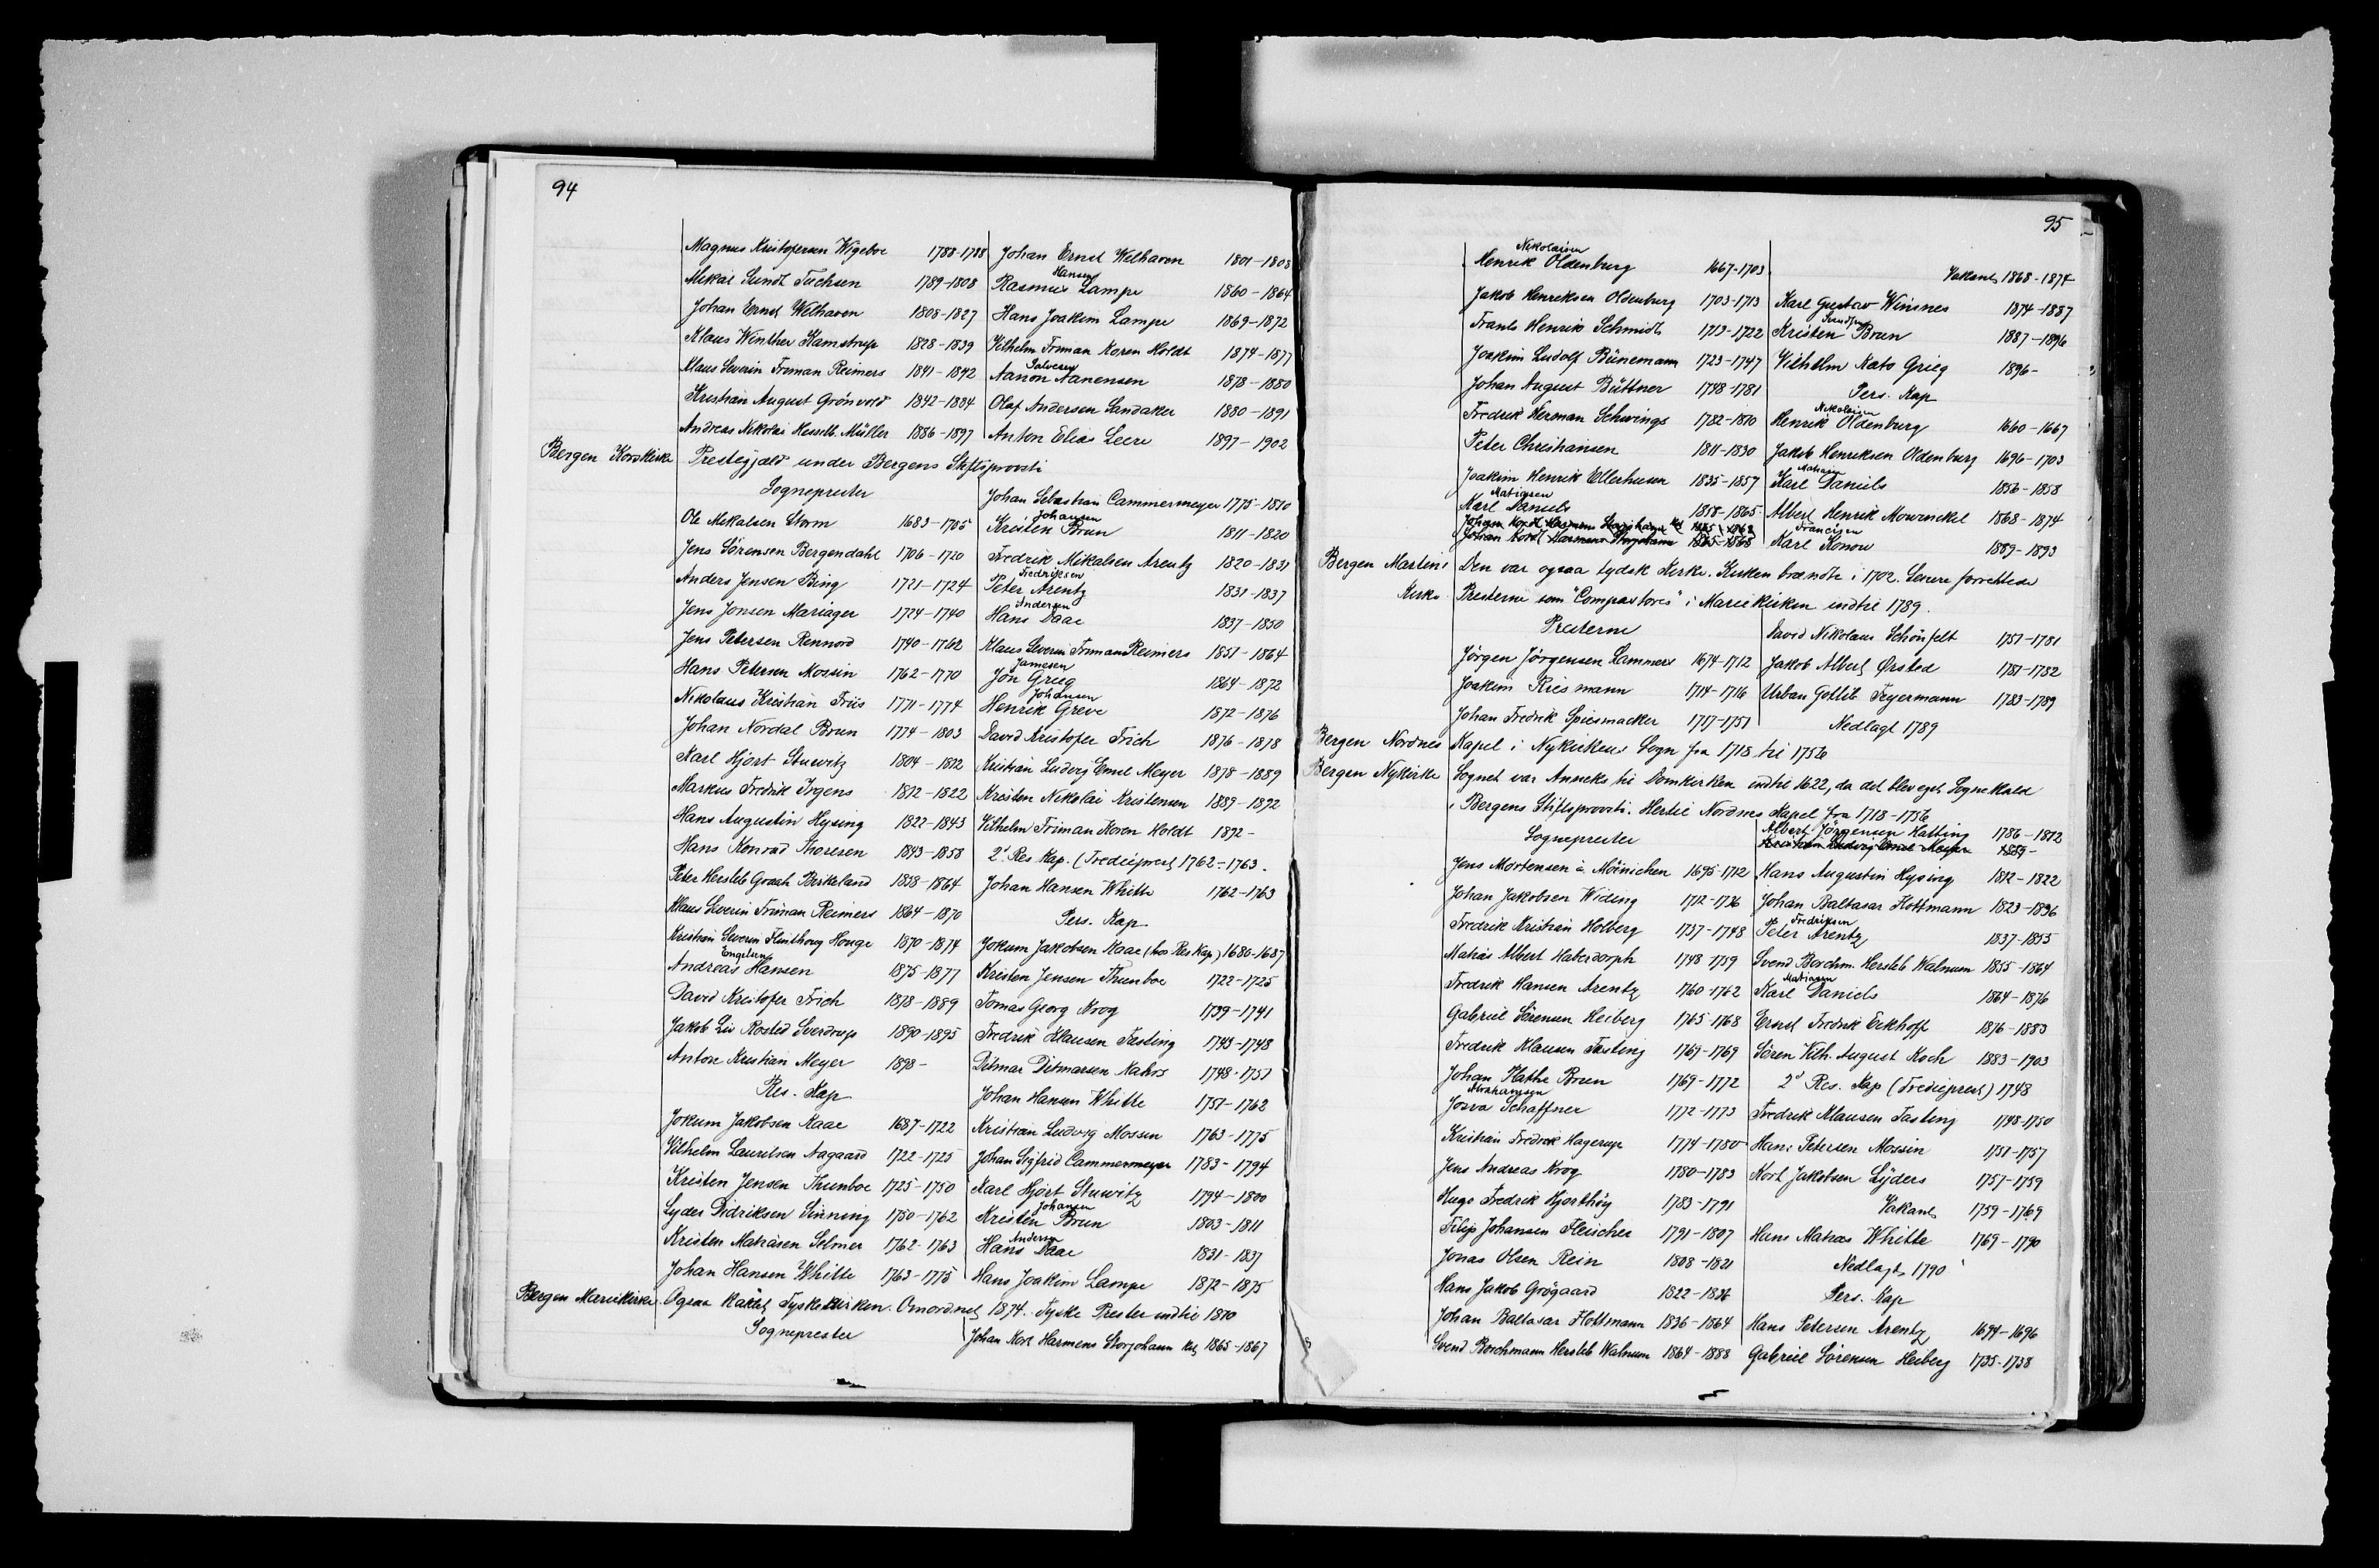 94
Magnus Kristofersen Wigeboe 1788-1788
Mikal Sundt Tuchsen 1789-1808
Johan Ernst Welhaven 1808-1827
Klaus Winther Kamstrup 1828-1839
Klaus Severin Friman Reimers 1841-1842
Kristian August Grönvold 1842-1884
Andreas Nikolai Hesselb. Müller 1886-1897
Johan Ernst Welhaven 1801-1808
Hansen
Rasmus Lampe 1860-1864
Hans Joakim Lampe 1869-1872
Vilhelm Friman Koren Holdt 1874-1877
Salvesen
Aanon Aanensen 1878-1880
Olaf Andersen Sandaker 1880-1891
Anton Elias Leere 1897-1902
Bergen Korskirke Prestegjæld under Bergens Stiftsprovsti
Sogneprester
Ole Mikalsen Storm 1683-1705
Jens Sörensen Bergendahl 1706-1720
Anders Jensen Bing 1721-1724
Jens Jonsen Mariager 1724-1740
Jens Petersen Rennord 1740-1762
Hans Petersen Mossin 1762-1770
Nikolaus Kristian Friis 1771-1774
Johan Nordal Brun 1774-1803
Karl Hjort Stuwitz 1804-1812
Markus Fredrik Irgens 1812-1822
Hans Augustin Hysing 1822-1843
Hans Konrad Thoresen 1843-1858
Peter Hersleb Graah Birkeland 1858-1864
Klaus Severin Friman Reimers 1864-1870
Kristian Severin Flinthoug Houge 1870-1874
Engelsen
Andreas Hansen 1875-1877
David Kristofer Frich 1878-1889
Jakob Liv Rosted Sverdrup 1890-1895
Anton Kristian Meyer 1898-
Res. Kap
Jokum Jakobsen Kaae 1687-1722
Vilhelm Lauritsen Aagaard 1722-1725
Kristen Jensen Thunboe 1725-1750
Lyder Didriksen Sinning 1750-1762
Kristen Matiasen Selmer 1762-1763
Johan Hansen Whitte 1763-1775
Johan Sebastian Cammermeyer 1775-1810
Johansen
Kristen Brun 1811-1820
Fredrik Mikalsen Arentz 1820-1831
Fredriksen
Peter Arentz 1831-1837
Andersen
Hans Daae 1837-1850
Klaus Severin Friman Reimers 1851-1864
Jamesen
Jon Grieg 1864-1872
Johansen
Henrik Greve 1872-1876
David Kristofer Frich 1876-1878
Kristian Ludvig Emil Meyer 1878-1889
Kristen Nikolai Kristensen 1889-1892
Vilhelm Friman Koren Holdt 1892-
2d Res. Kap. (Tredieprest) 1762-1763.
Johan Hansen Whitte 1762-1763
Pers. Kap
Jokum Jakobsen Kaae (hos Res Kap) 1680-1687
Kristen Jensen Thunboe 1722-1725
Tomas Georg Krog 1739-1741
Fredrik Klausen Fasting 1743-1748
Ditmar Ditmarsen Kahrs 1748-1751
Johan Hansen Whitte 1751-1762
Kristian Ludvig Mossin 1763-1775
Johan Sigfrid Cammermeyer 1783-1794
Karl Hjort Stuwitz 1794-1800
Johansen
Kristen Brun 1803-1811
Andersen
Hans Daae 1831-1837
Hans Joakim Lampe 1872-1875
Bergen Mariekirke Ogsaa kaldet Tyskekirken. Omordnet 1874. Tyske Prester indtil 1870
Sogneprester
Johan Kort Harmens Storjohann Kst 1865-1867
95
Nikolaisen
Henrik Oldenburg 1667-1703
Jakob Henriksen Oldenburg 1703-1713
Frants Henrik Schmidt 1713-1722
Joakim Ludolf Bünemann 1723-1747
Johan August Büttner 1748-1781
Fredrik Herman Schwings 1782-1810
Peter Christiansen 1811-1830
Joakim Henrik Ellerhusen 1835-1857
Matiasen
Karl Daniels 1858-1865
Johan Kort Harmens Storjohann Kst 1865-1868
Johan Kord Harmens Storjohann 1865-1868
Vakant 1868-1874
Karl Gustav Winsnes 1874-1887
Kristen Brun 1887-1896
Vilhelm Kato Grieg 1896-
Pers. Kap
Nikolaisen
Henrik Oldenburg 1660-1667
Jakob Henriksen Oldenburg 1696-1703
Matiasen
Karl Daniels 1856-1858
Albert Henrik Mowinckel 1868-1874
Francisen
Karl Konow 1889-1893
Bergen Martins Den var ogsaa tydsk Kirke. Kirken brændte i 1702. Senere forrettede
Kirke Presterne som "Compastores" i Mariekirken indtil 1789.
Presterne
Jörgen Jörgensen Lammers 1674-1712
Joakim Riesmann 1714-1716
Johan Fredrik Spiesmacker 1717-1751
David Nikolaus Schönfelt 1751-1781
Jakob Albert Ørsted 1781-1782
Urban Gotlib Feyermann 1783-1789
Nedlagt 1789
Bergen Nordnes Kapel i Nykirkens Sogn fra 1718 til 1756
Bergen Nykirke Sognet var Anneks til Domkirken indtil 1622, da det blev eget Sognekald
i Bergens Stiftsprovsti. Hertil Nordnes Kapel fra 1718-1756
Sogneprester
Jens Mortensen à Möinichen 1695-1712
Johan Jakobsen Widing 1712-1736
Fredrik Kristian Holberg 1737-1748
Matias Albert Haberdorph 1748-1759
Fredrik Hansen Arentz 1760-1762
Gabriel Sörensen Heiberg 1765-1768
Fredrik Klausen Fasting 1769-1769
Johan Plathe Brun 1769-1772
Abrahamsen
Josva Schaffner 1772-1773
Kristian Fredrik Hagerup 1774-1780
Jens Andreas Krog 1780-1783
Hugo Fredrik Hjorthöy 1783-1791
Filip Johansen Fleischer 1791-1807
Jonas Olsen Rein 1808-1821
Hans Jakob Grögaard 1822-1836
Johan Baltasar Flottmann 1836-1864
Svend Borchmann Hersleb Walnum 1864-1888
Albert Jörgensen Hatting 1786-1812
Kristian Ludvig Emil Meyer 1889-
Hans Augustin Hysing 1812-1822
Johan Baltasar Flottmann 1823-1836
Fredriksen
Peter Arentz 1837-1855
Svend Borchm. Hersleb Walnum 1855-1864
Matiasen
Karl Daniels 1864-1876
Ernst Fredrik Eckhoff 1876-1883
Sören Vilh. August Koch 1883-1903
2d Res. Kap (Tredieprest) 1748
Fredrik Klausen Fasting 1748-1750
Hans Petersen Mossin 1751-1757
Kort Jakobsen Lyders 1757-1759
Vakant 1759-1769
Hans Matias Whitte 1769-1790
Nedlagt 1790
Pers. Kap
Hans Petersen Arentz 1694-1696
Gabriel Sörensen Heiberg 1735-1738